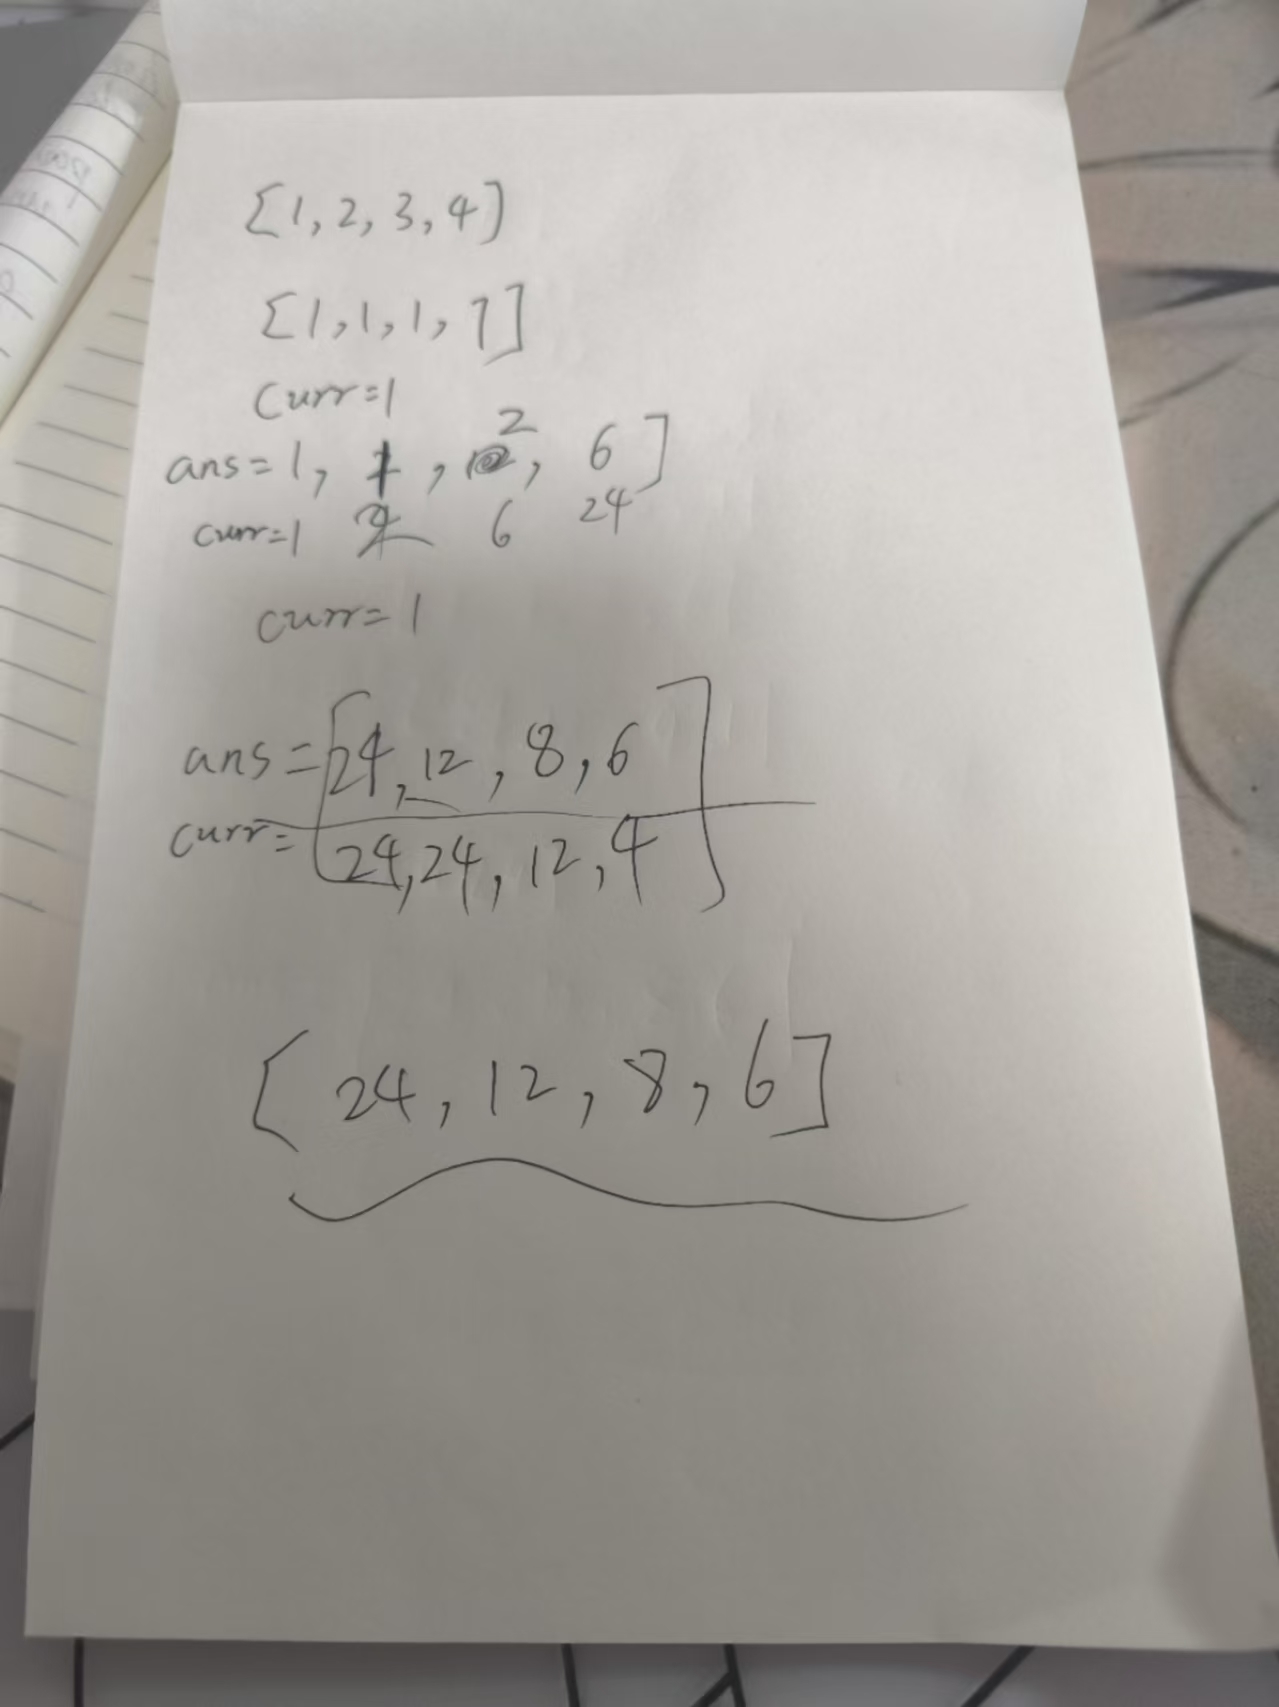 [1, 2, 3, 4]
[1, 1, 1, 1]
curr=1
ans=1, 1, 2, 6]
curr=1 2 6 24
curr=1
ans=[24, 12, 8, 6]
curr=[24, 24, 12, 4]
[24, 12, 8, 6]